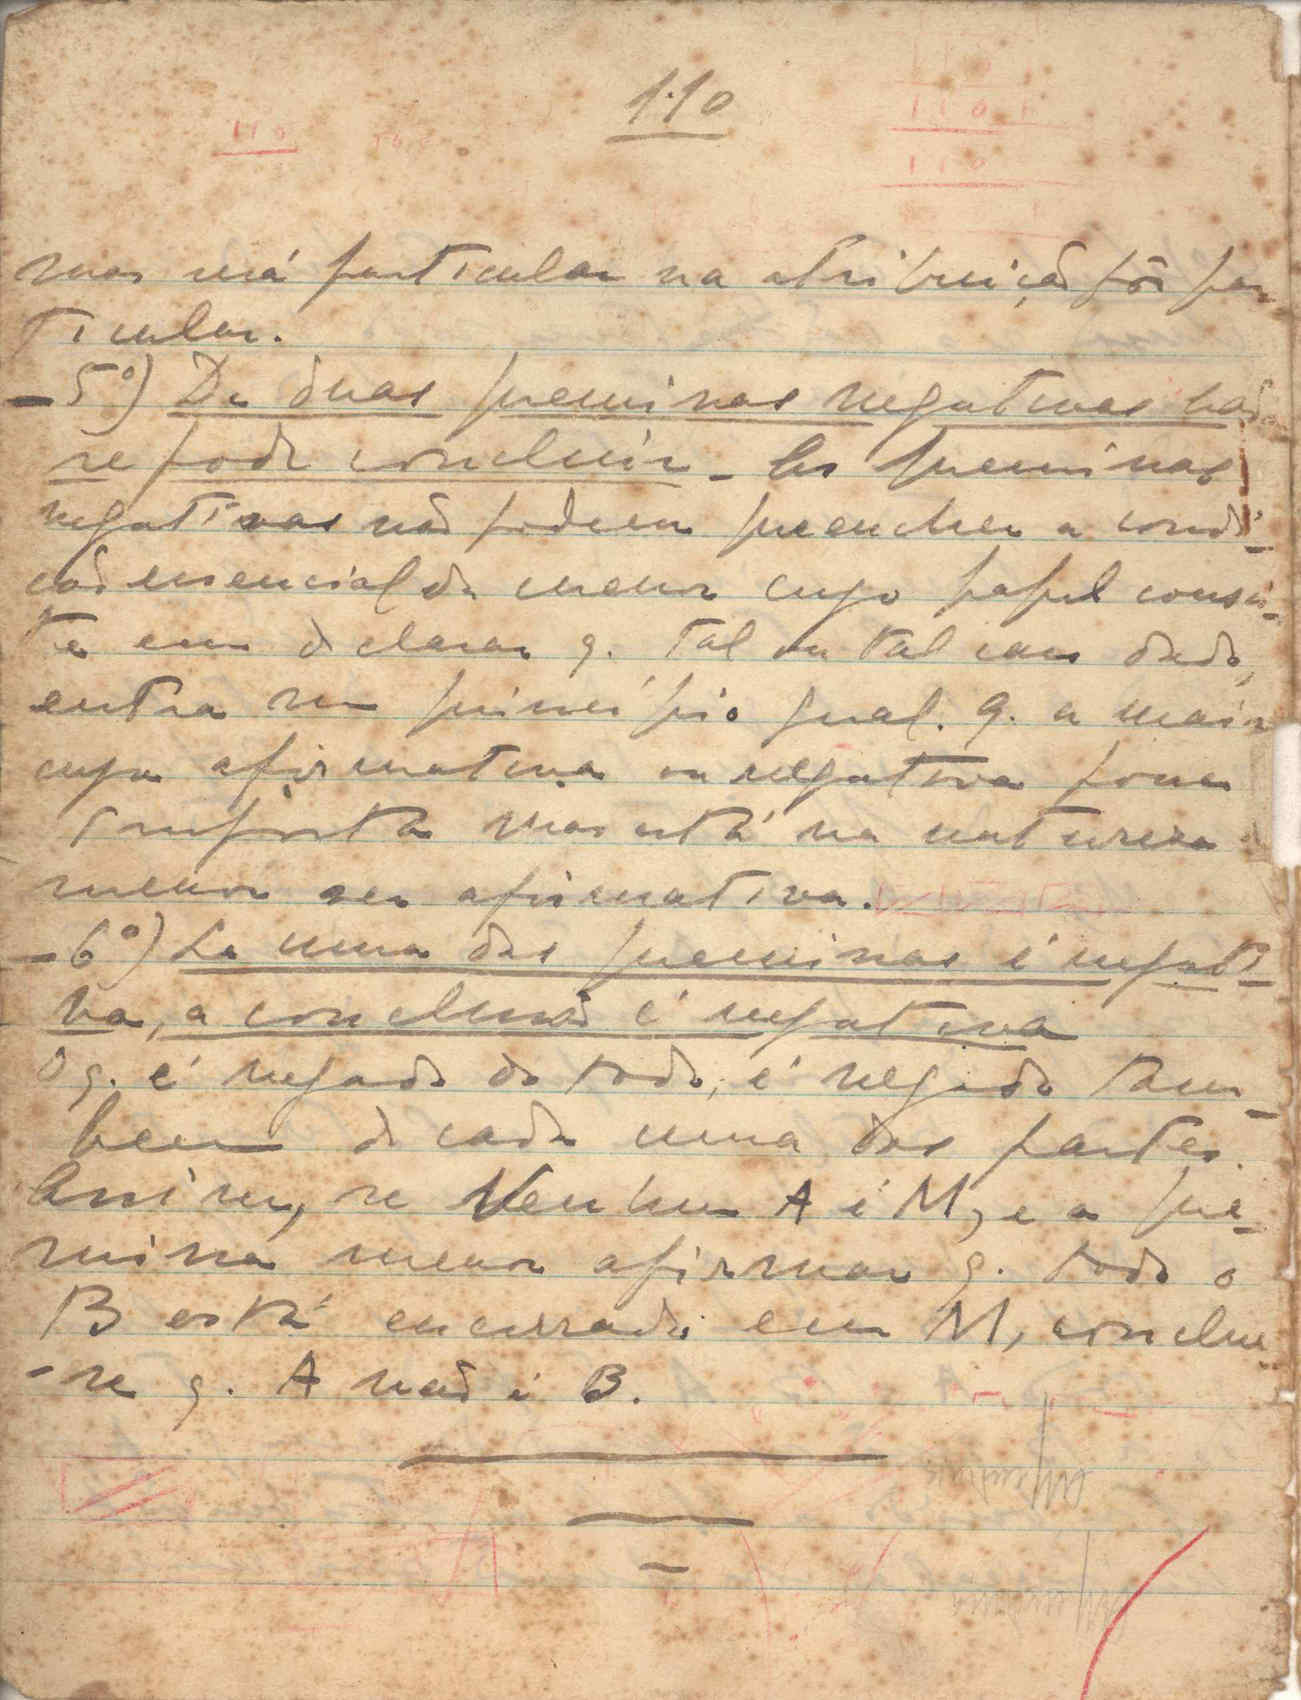 110
110
1101
110
mas será particular na atribuição fôr par
ticular.
- 5º) De duas premissas negativas não
se pode concluir - As premissas
negativas não podem preencher a condi-
ção essencial da menor cujo papel consis-
te em declarar q. tal ou tal caso dado,
entra no princípio geral. q. a maior
seja afirmativa ou negativa pouco
importa mas está na natureza
menor ser afirmativa.
- 6º) Se uma das premissas é negati-
va, a conclusão é negativa
O q. é negado do todo, é negado tam-
bem de cada uma das partes.
Assim, se Nenhum A é M, e a pre-
missa menor afirmar q. todo o
B está encerrado em M, conclue-
-se q. A não é B.